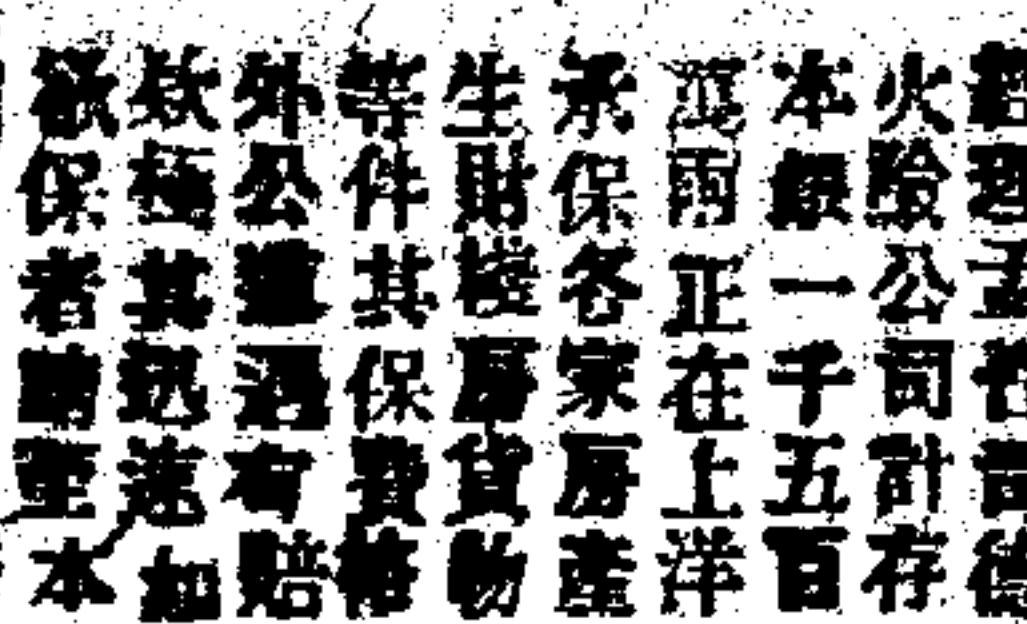 火險公司計存
本銀一千五百
鴻雨正在上洋
承保各家房產
生財樓房貨物
等件其保費格
外公道遇有賠
欵極其迅速如
欲保者請至本